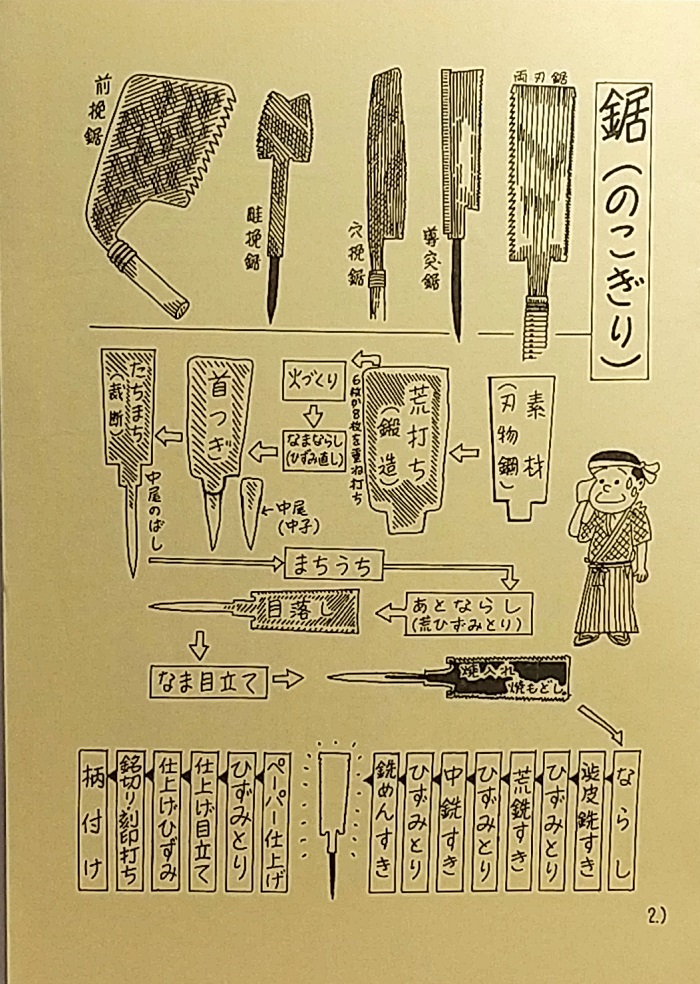 鋸(のこぎり)
両刃鋸
導突鋸
穴挽鋸
畦挽鋸
前挽鋸
素材
(刃物鋼)
荒打ち
(鍛造)
6枚か8枚を重ね打ち
火づくり
なまならし
(ひずみ直し)
首つぎ
中尾
(中子)
たちまち
(裁断)
中尾のばし
まちうち
あとならし
(荒ひずみとり)
目落し
なま目立て
焼入れ
焼もどし
ならし
渋皮銑すき
ひずみとり
荒銑すき
ひずみとり
中銑すき
ひずみとり
銑めんすき
ペーパー仕上げ
ひずみとり
仕上げ目立て
仕上げひずみ
銘切り・刻印打ち
柄付け
2.)